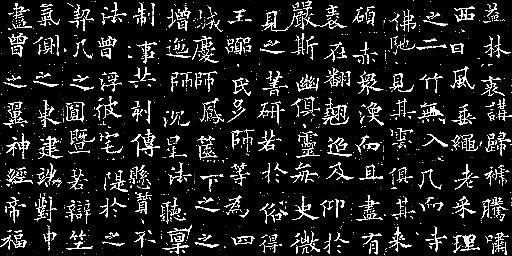 益林哀講歸稀騰嘯
西日風垂繩老采理
之二竹無入几而寺
佛馳見其雲俱其來
碩亦衆漁而且盡有
表在翻翹迨及仰於
嚴斯幽俱靈每史微
見之菩研若於俗得
王弼民多師等為四
城慶師鳳下之之
增師況呈法聽稟
制事共刹傳懸贊不
法曾浮彼宅隄於之
契几之圓暨若辯笠
氣側之史建端對中
盡曾之翼神經帝福